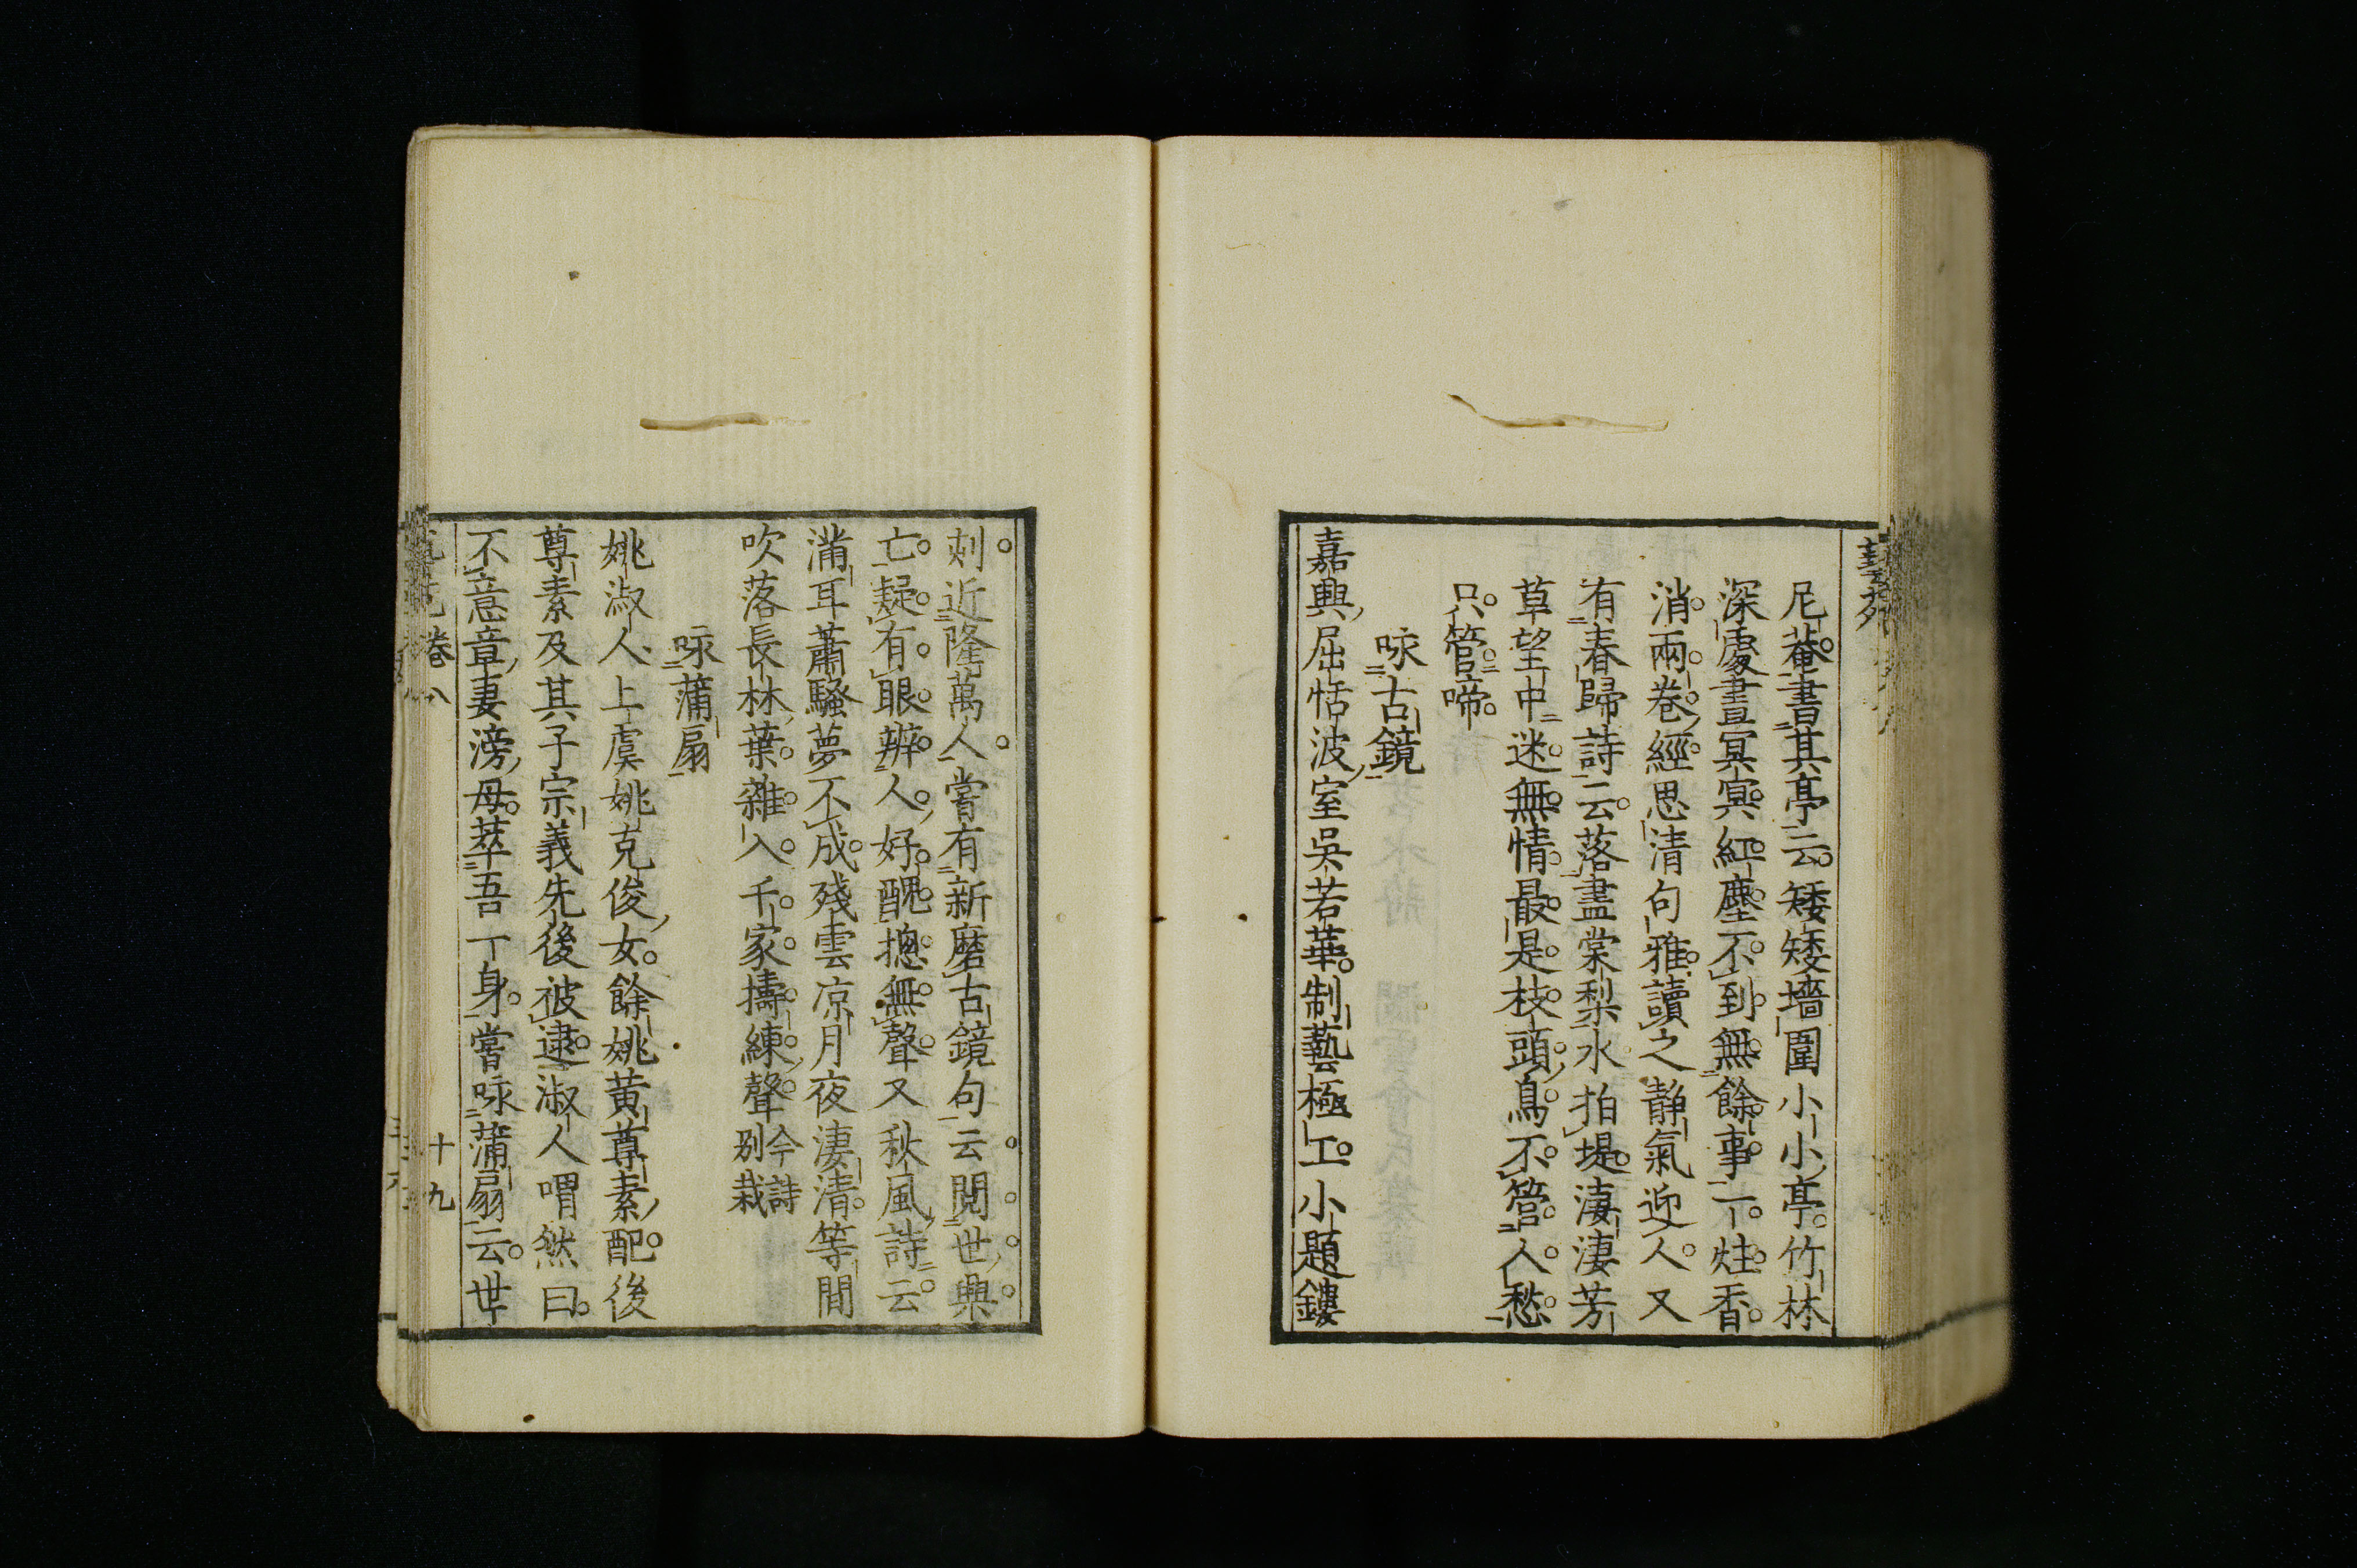 尼菴書其亭云矮矮墻圍小小亭竹林
深處晝冥冥紅塵不到無餘事一炷香
消兩卷經思清句雅讀之静氣迎人又
有春歸詩云落盡棠梨水拍堤淒淒芳
草望中迷無情最是枝頭鳥不管人愁
只管啼
咏古鏡
嘉興屈恬波室吳若華制藝極工小題鏤
刻近隆萬人嘗有新磨古鏡句云閱世興
亡疑有眼辨人好醜摠無聲又秋風詩云
滿耳蕭騷夢不成殘雲凉月夜淒清等閒
吹落長林葉雜入千家擣練聲今詩
別裁
咏蒲扇
姚淑人上虞姚克俊女餘姚黄尊素配後
尊素及其子宗義先後被逮淑人喟然曰
不意章妻滂母萃吾一身嘗咏蒲扇云世
卷八
十九